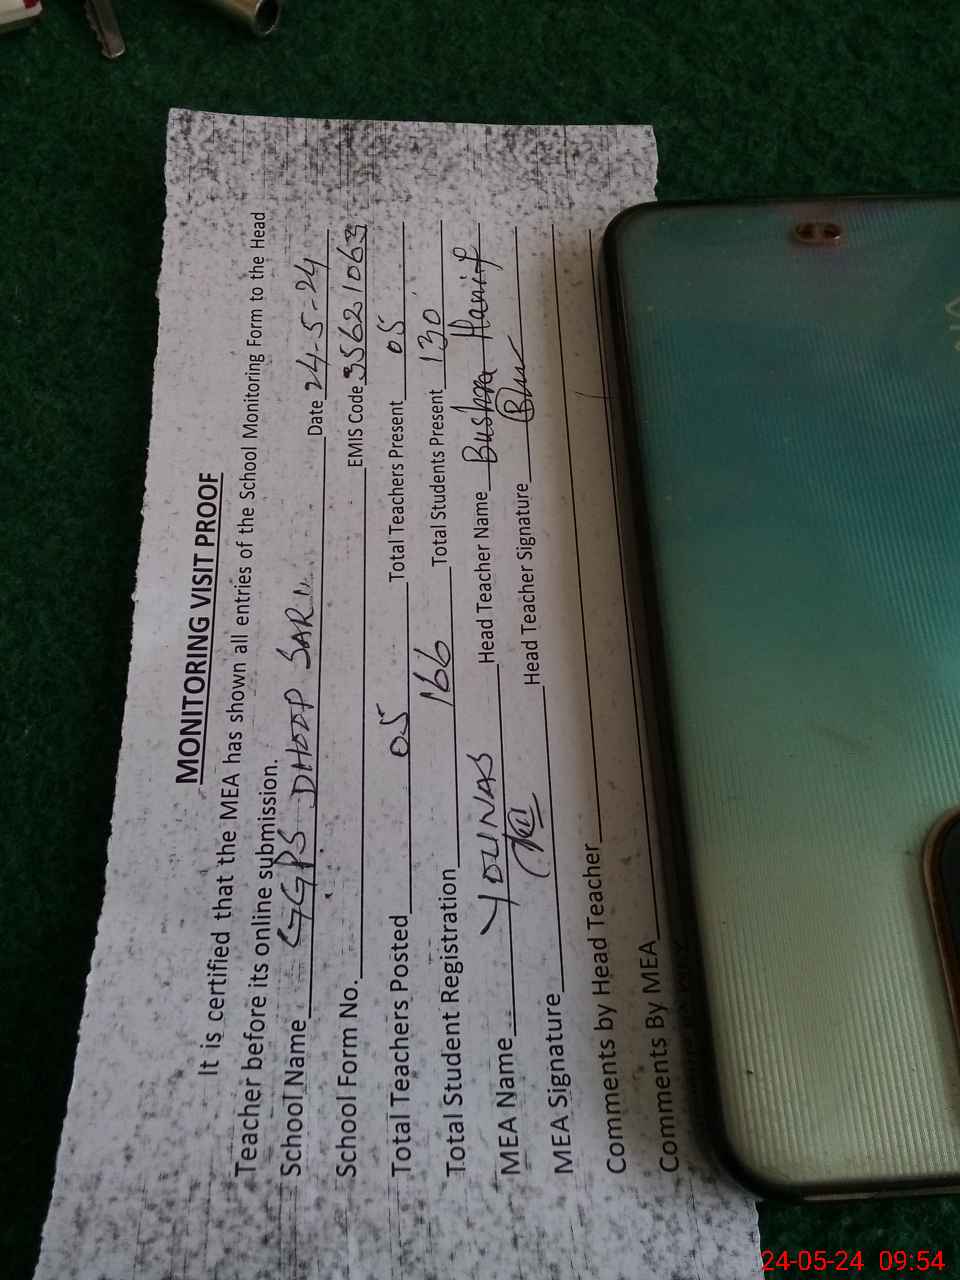 MONITORING VISIT PROOF
It is certified that the MEA has shown all entries of the School Monitoring Form to the Head
Teacher before its online submission.
School Name GGPS DHOOP SARI Date 24-5-24
School Form No. EMIS Code 35621063
Total Teachers Posted 05 Total Teachers Present 05
Total Student Registration 166 Total Students Present 130
MEA Name YOUNAS Head Teacher Name Bushra Hanif
MEA Signature Head Teacher Signature
Comments by Head Teacher
Comments By MEA
24-05-24 09:54